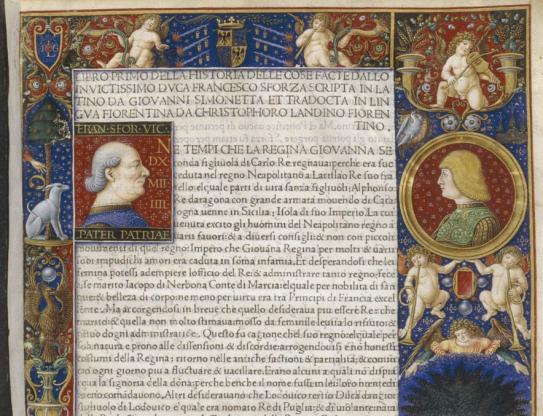 LIBRO PRIMO DELLA HISTORIA DELLE COSE FACTE DALLO
INVICTISSIMO DVCA FRANCESCO SFORZA SCRIPTA IN LA
TINO DA GIOVANNI SIMONETTA ET TRADOCTA IN LIN
GVA FIORENTINA DA CHRISTOPHORO LANDINO FIOREN
TINO.
FRAN·SFOR·VIC·
N
DX
MII
IIII
PATER PATRIAE
E TEMPI CHE LA REGINA GIOVANNA SE
conda figliuola di Carlo Re regnaua: perche era suc
ceduta nel regno Neapolitano a Lantilao Re suo fra
tello: el quale parti di uita sanza figliuoli: Alphonso
Re daragona con grande armata mouendo di Cata
logna uenne in Sicilia: Isola di suo Imperio. La cui
uenuta excito gli huomini del Neapolitano regno a
uarii fauori: & a diuersi consigli: & non con piccoli
mouimenti di quel regno: Impero che Giouana Regina per molti & uarii
suoi impudichi amori era caduta in soma infamia. Et desperandosi che lei
femina potessi adempiere lofficio del Re & administrare tanto regno: fece
a se marito Iacopo di Nerbona Conte di Marcia: el quale per nobilita di san
gue: & belleza di corpo: ne meno per uirtu era tra Principi di Francia excel
lente. Ma accorgendosi in breue che quello desideraua piu essere Re che
marito: & quella non molto stimaua: mosso da feminile leuita lo rifiuto: &
priuo dogni administratione. Questo fu cagione che el suo regno: el quale per
sua natura e prono alle dissensioni & discordie: arrogendouisi e no honesti
costumi della Regina: ritorno nelle antiche factioni & partialita: & comin
cio ogni giorno piu a fluctuare & uacillare. Erano alcuni a quali no dispia
ceua la signoria della dona: perche benche il nome fussi in lei: loro nientedi
meno comandauono. Altri desiderauano che Lodouico tertio Duca dangio
figliuolo di Lodouico el quale era nomato Re di Puglia: & di uiolante nata